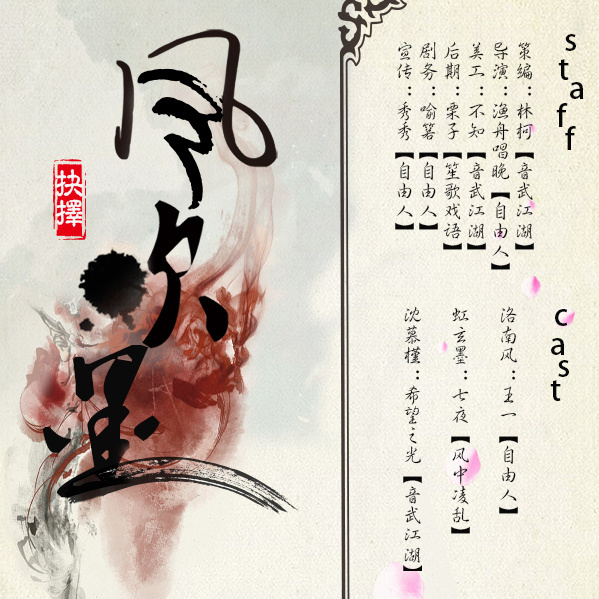 风欠墨
抉擇
staff
策编：林柯【音武江湖】
导演：渔舟唱晚【自由人】
美工：不知【音武江湖】
后期：栗子【笙歌戏语】
剧务：喻箬【自由人】
宣传：秀秀【自由人】
cast
洛南风：王一【自由人】
虹玄墨：七夜【风中凌乱】
沈慕槿：希望之光【音武江湖】